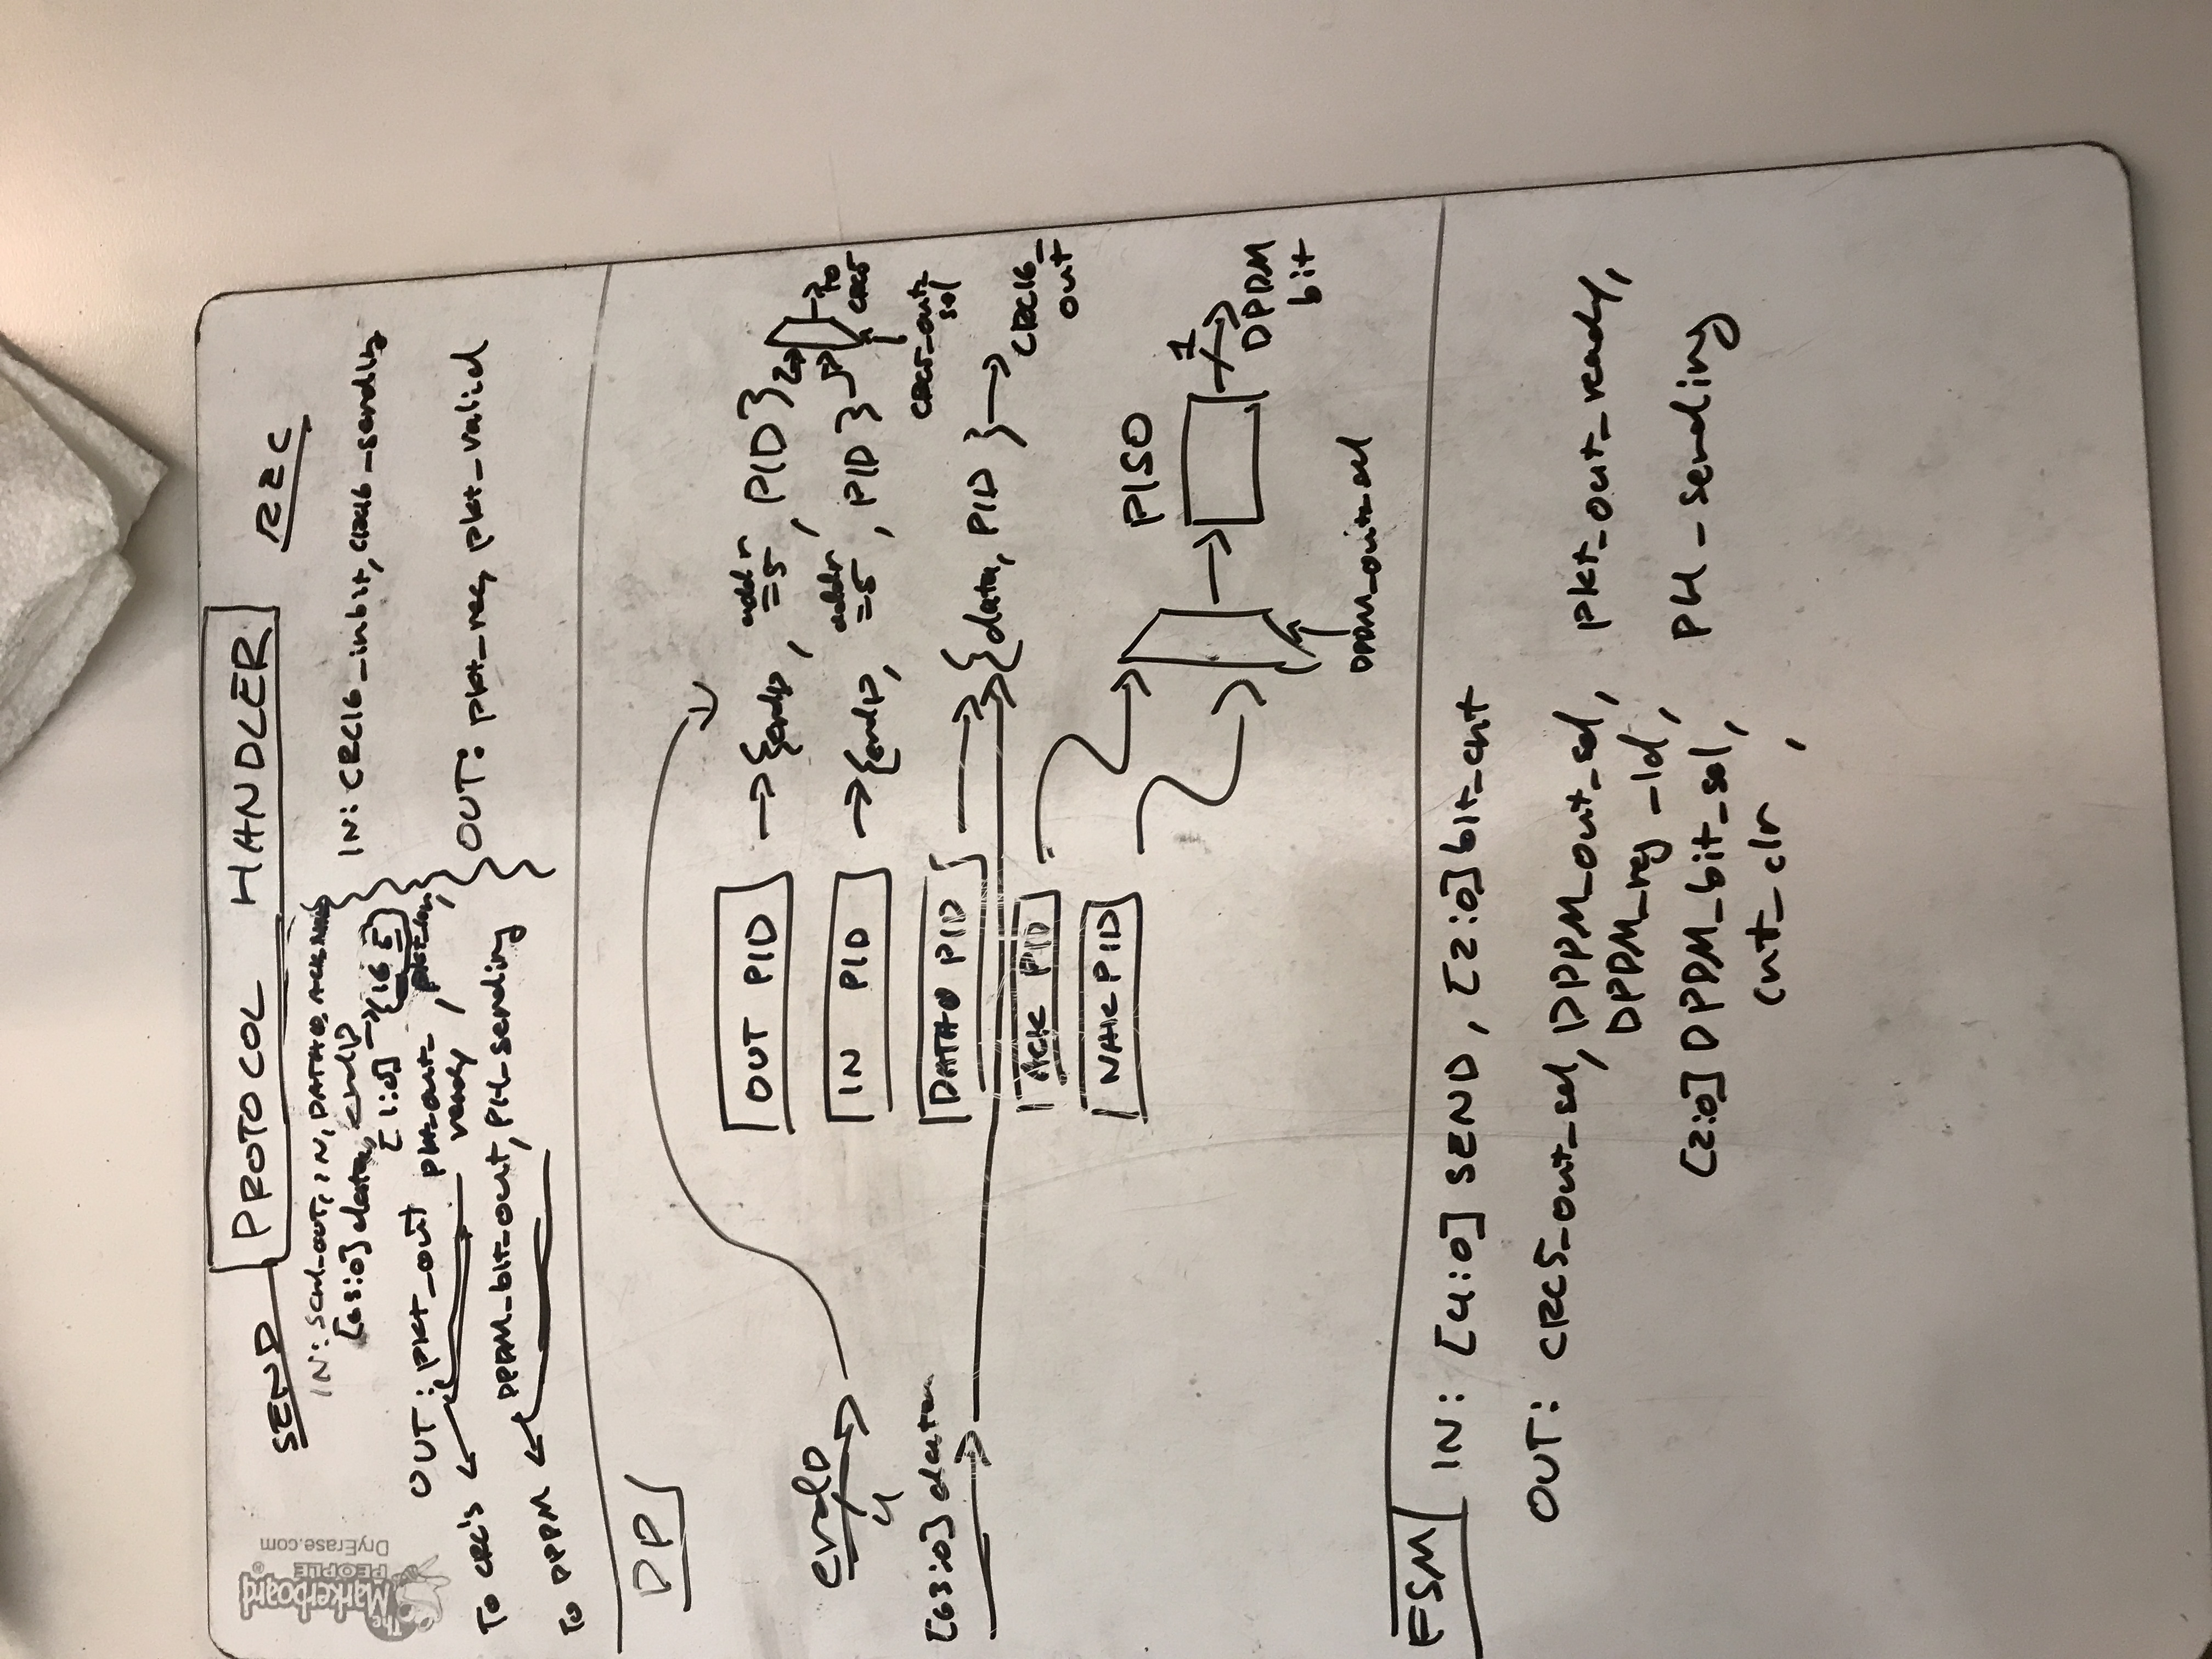 The Markerboard PEOPLE®
DryErase.com
PROTOCOL HANDLER
SEND
IN: send_OUT, IN, DATA0, ACK,
[63:0] data, endp
[1:0] → {16 5}
OUT: pkt_out, pkt_out_ready,
To CRC's
DPPM_bit_out, PH_sending
To DPPM
REC
IN: CRC16_inbit, CRC16_sending
OUT: pkt_rec, pkt_valid
DP
endp
4
[63:0] data
OUT PID → {endp, addr=5, PID}
IN PID → {endp, addr=5, PID}
to CRC5
CRC5_out_sel
DATA0 PID → {data, PID} → CRC16_out
ACK PID
NAK PID
PISO
1
DPDM bit
DPDM_out_sel
FSM
IN: [4:0] SEND, [2:0] bit_cnt
OUT: CRC5_out_sel, DPPM_out_sel, pkt_out_ready,
DPDM_reg_ld,
[2:0] DPDM_bit_sel, PH_sending
cnt_clr,